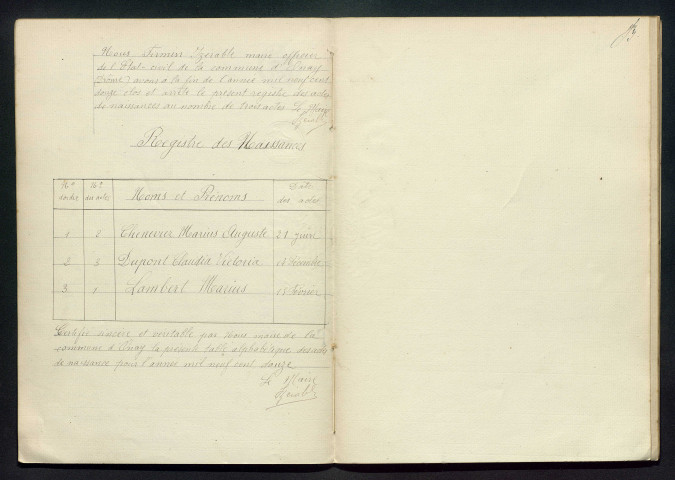 Nous Firmin Izerable maire officier
de l'Etat civil de la commune d'
(Drôme) avons à la fin de l'année mil neuf cent
douze clos et arrêté le présent registre des actes
de naissances au nombre de trois actes Le Maire
Registre des Naissances
Nos d'ordre Nos des actes Noms et Prénoms Date des actes
1 2 Chenevier Marius Auguste 21 Juin
2 3 Dupont Claudia Victoria
3 1 Lambert Marius 15 Février
Certifié sincère et véritable par nous maire de la
commune d' la présente table alphabétique des actes
de naissance pour l'année mil neuf cent douze
Le Maire